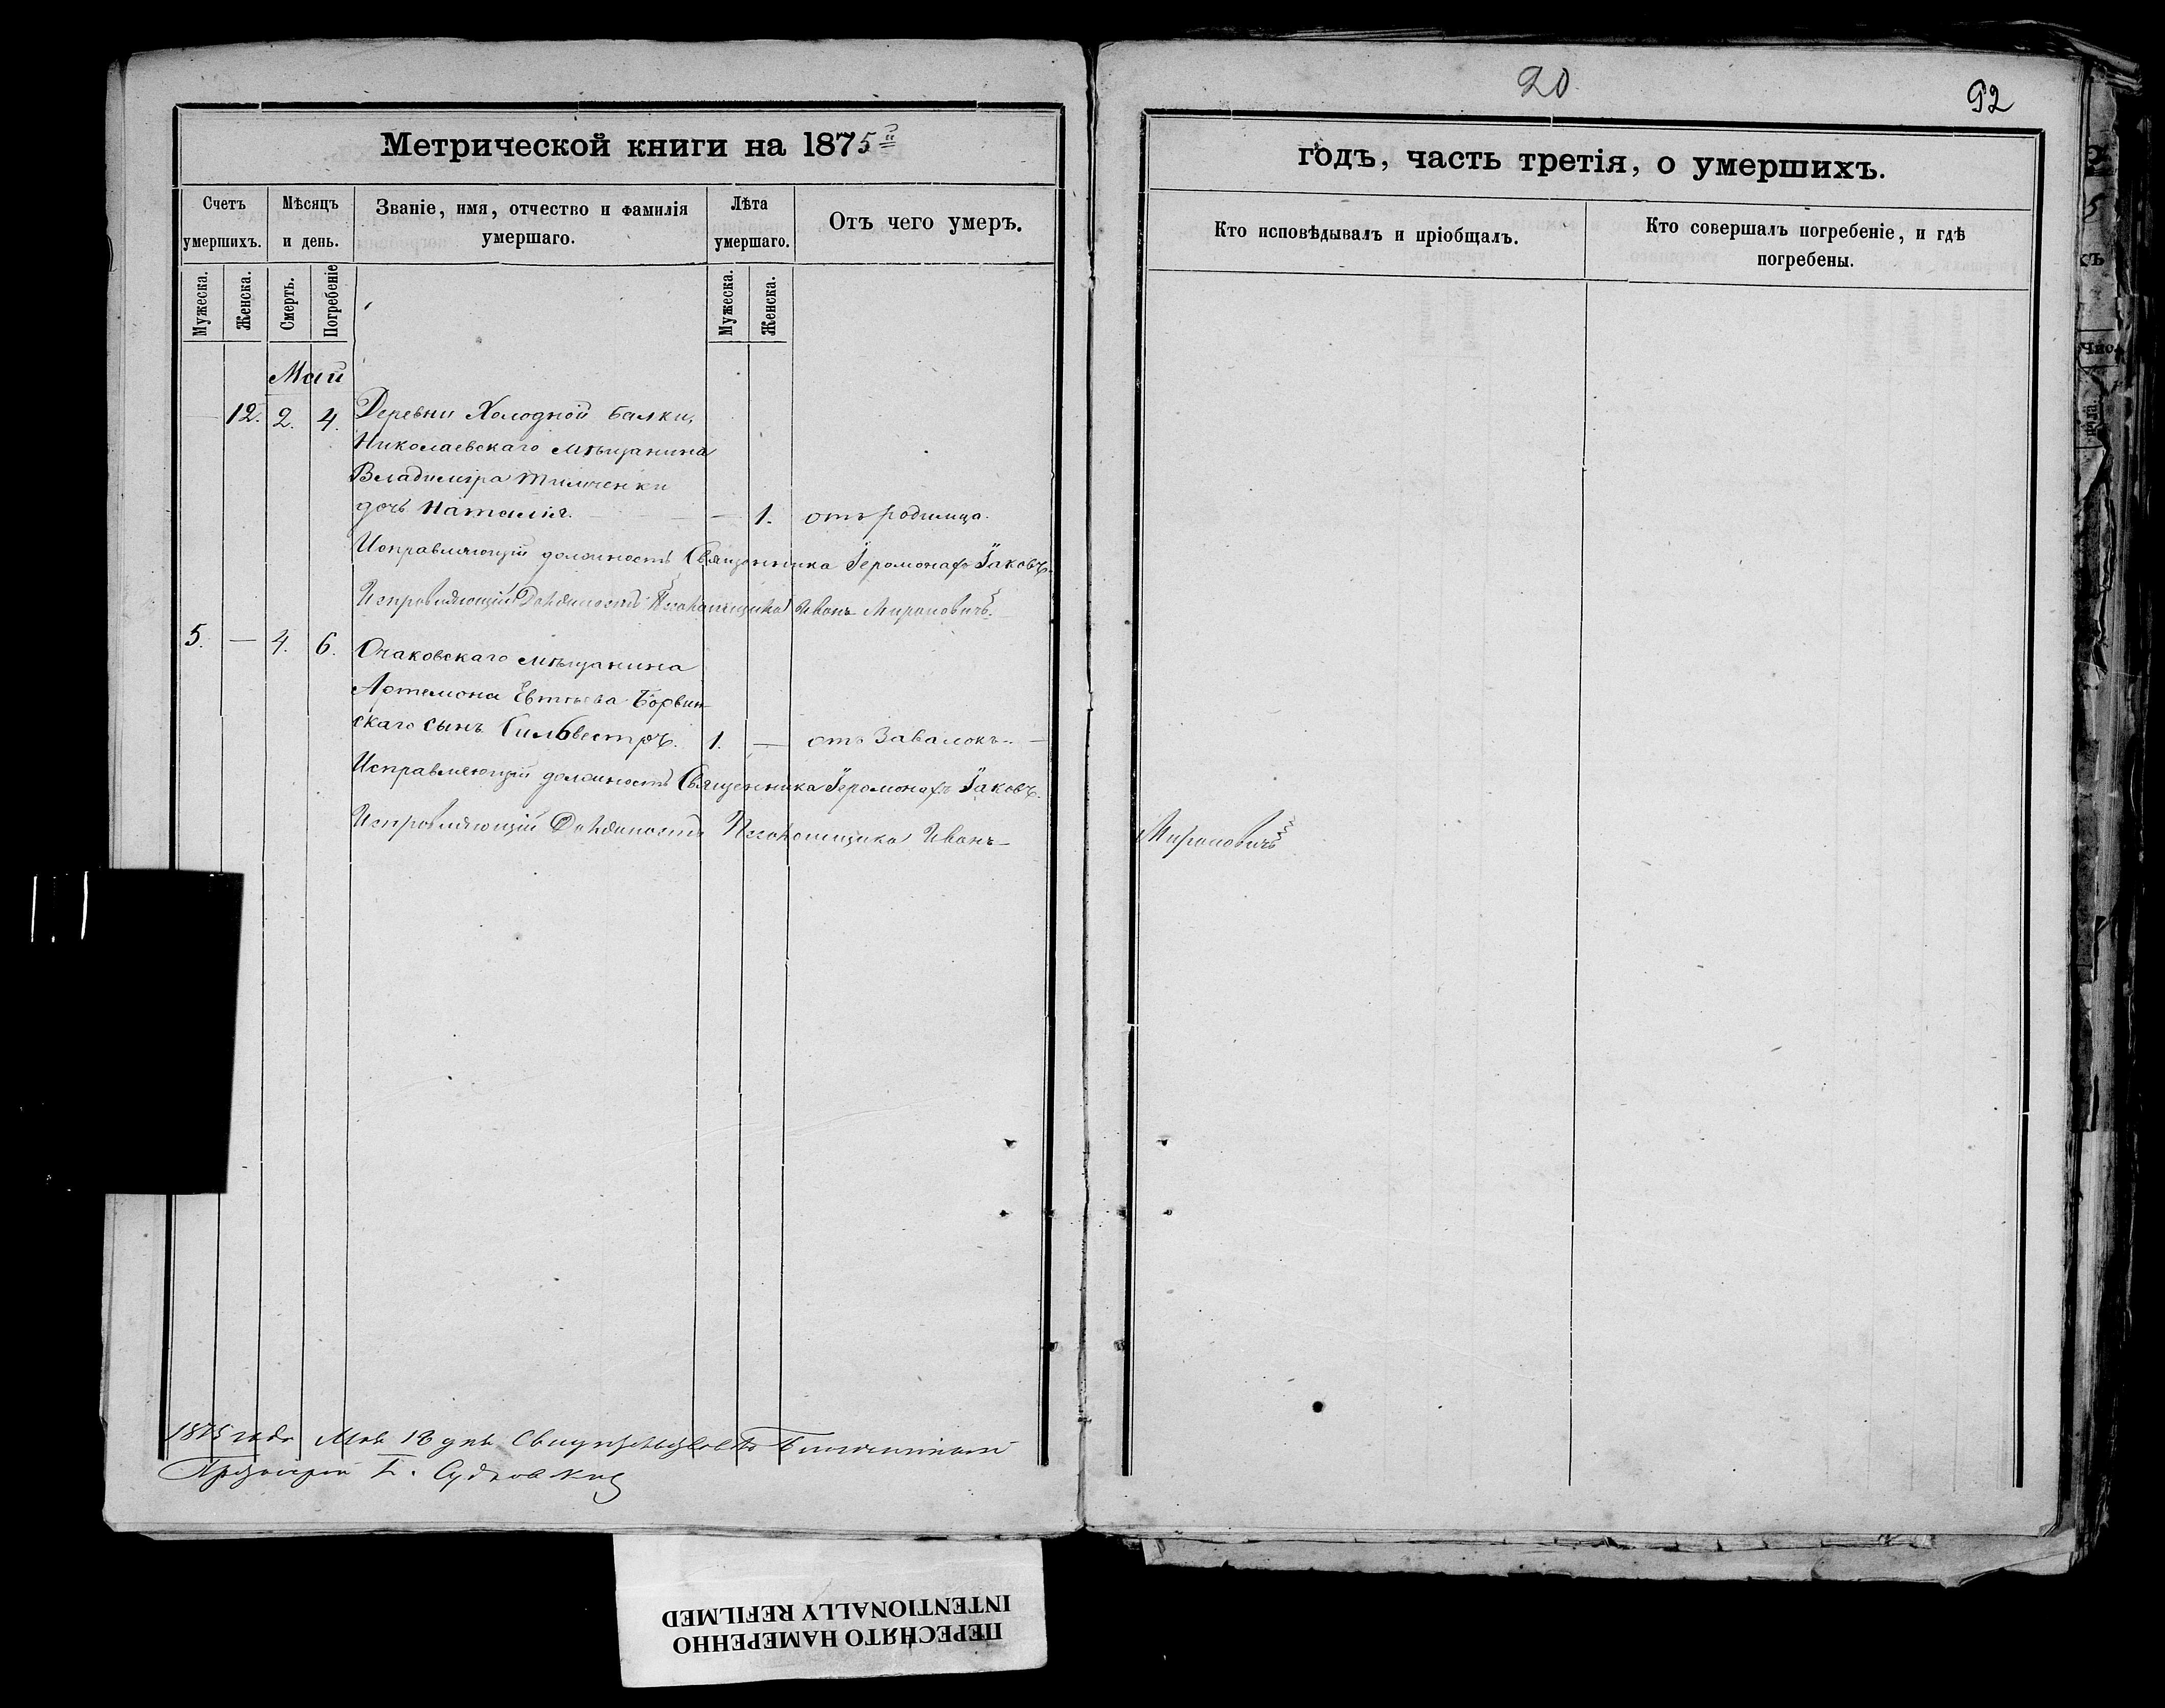 Метрической книги на 1875й
Счетъ умершихъ.
Мѣсяцъ и день.
Званіе, имя, отчество и фамилія умершаго.
Лѣта умершаго.
Отъ чего умеръ.
Мужеска.
Женска.
Смерть.
Погребеніе
Мужеска.
Женска.
Май
— 12. 2. 4. Деревни Холодной Балки,
Николаевскаго мѣщанина
Владиміра
дочь Наталія. — — 1. отъ родимца.
Исправляющій должность Священника Іеромонахъ Іаковъ.
Исправляющій Должность Псаломщика Иванъ Мироновичъ.
5. — 4. 6. Очаковскаго мѣщанина
Артемона Евтѣева Борвин
скаго сынъ Сильвестръ. 1. — отъ Завалокъ. —
Исправляющій должность Священника Іеромонахъ Іаковъ.
Исправляющій Должность Псаломщика Иванъ —
1875 года Мая 18 дня Свидѣтельствовалъ Благочинный
Протоіерей Судковскій
20
92
годъ, часть третія, о умершихъ.
Кто исповѣдывалъ и пріобщалъ.
Кто совершалъ погребеніе, и гдѣ погребены.
Мироновичъ
ПЕРЕСНЯТО НАМЕРЕННО
INTENTIONALLY REFILMED